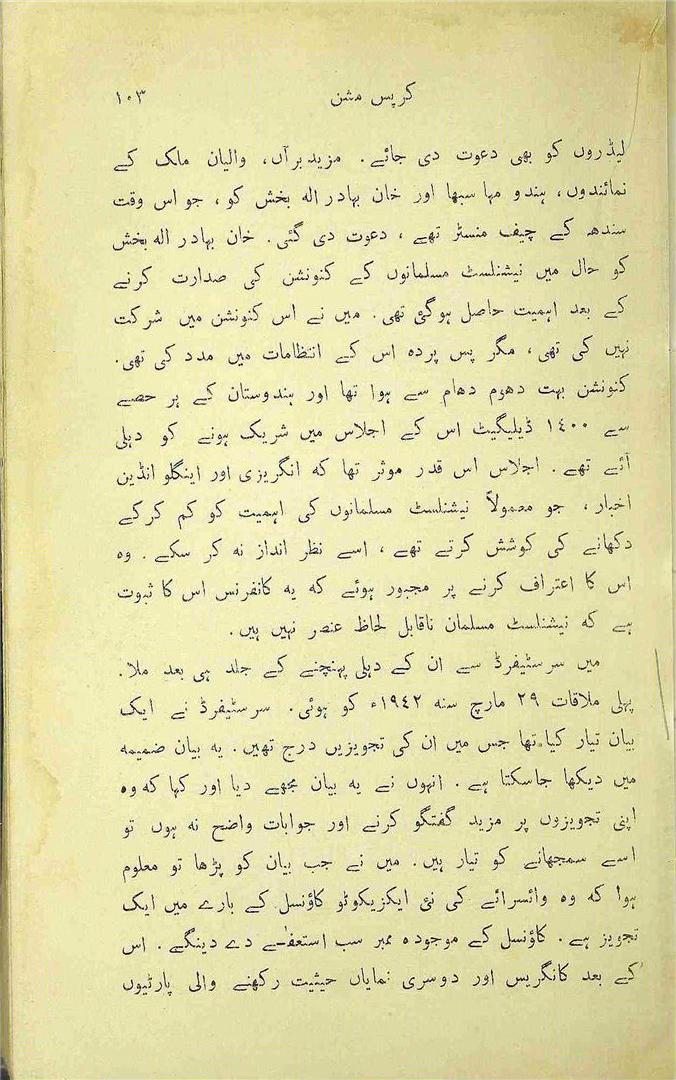 کرپس مشن ۱۰۳
لیڈروں کو بھی دعوت دی جائے۔ مزید برآں، والیان ملک کے
نمائندوں، ہندو مہا سبھا اور خان بہادر الہ بخش کو، جو اس وقت
سندھ کے چیف منسٹر تھے، دعوت دی گئی۔ خان بہادر الہ بخش
کو حال میں نیشنلسٹ مسلمانوں کے کنونشن کی صدارت کرنے
کے بعد اہمیت حاصل ہوگئی تھی۔ میں نے اس کنونشن میں شرکت
نہیں کی تھی، مگر پس پردہ اس کے انتظامات میں مدد کی تھی۔
کنونشن بہت دھوم دھام سے ہوا تھا اور ہندوستان کے ہر حصے
سے ۱۴۰۰ ڈیلیگیٹ اس کے اجلاس میں شریک ہونے کو دہلی
آئے تھے۔ اجلاس اس قدر موثر تھا کہ انگریزی اور اینگلو انڈین
اخبار، جو معمولاً نیشنلسٹ مسلمانوں کی اہمیت کو کم کرکے
دکھانے کی کوشش کرتے تھے، اسے نظر انداز نہ کر سکے۔ وہ
اس کا اعتراف کرنے پر مجبور ہوئے کہ یہ کانفرنس اس کا ثبوت
ہے کہ نیشنلسٹ مسلمان ناقابل لحاظ عنصر نہیں ہیں۔
میں سرسٹیفرڈ سے ان کے دہلی پہنچنے کے جلد ہی بعد ملا۔
پہلی ملاقات ۲۹ مارچ سنہ ۱۹۴۲ء کو ہوئی۔ سرسٹیفرڈ نے ایک
بیان تیار کیا تھا جس میں ان کی تجویزیں درج تھیں۔ یہ بیان ضمیمہ
میں دیکھا جاسکتا ہے۔ انہوں نے یہ بیان مجھے دیا اور کہا کہ وہ
اپنی تجویزوں پر مزید گفتگو کرنے اور جوابات واضح نہ ہوں تو
اسے سمجھانے کو تیار ہیں۔ میں نے جب بیان کو پڑھا تو معلوم
ہوا کہ وہ وائسرائے کی نئی ایکزیکوٹو کاؤنسل کے بارے میں ایک
تجویز ہے۔ کاؤنسل کے موجودہ ممبر سب استعفےٰ دے دینگے۔ اس
کے بعد کانگریس اور دوسری نمایاں حیثیت رکھنے والی پارٹیوں